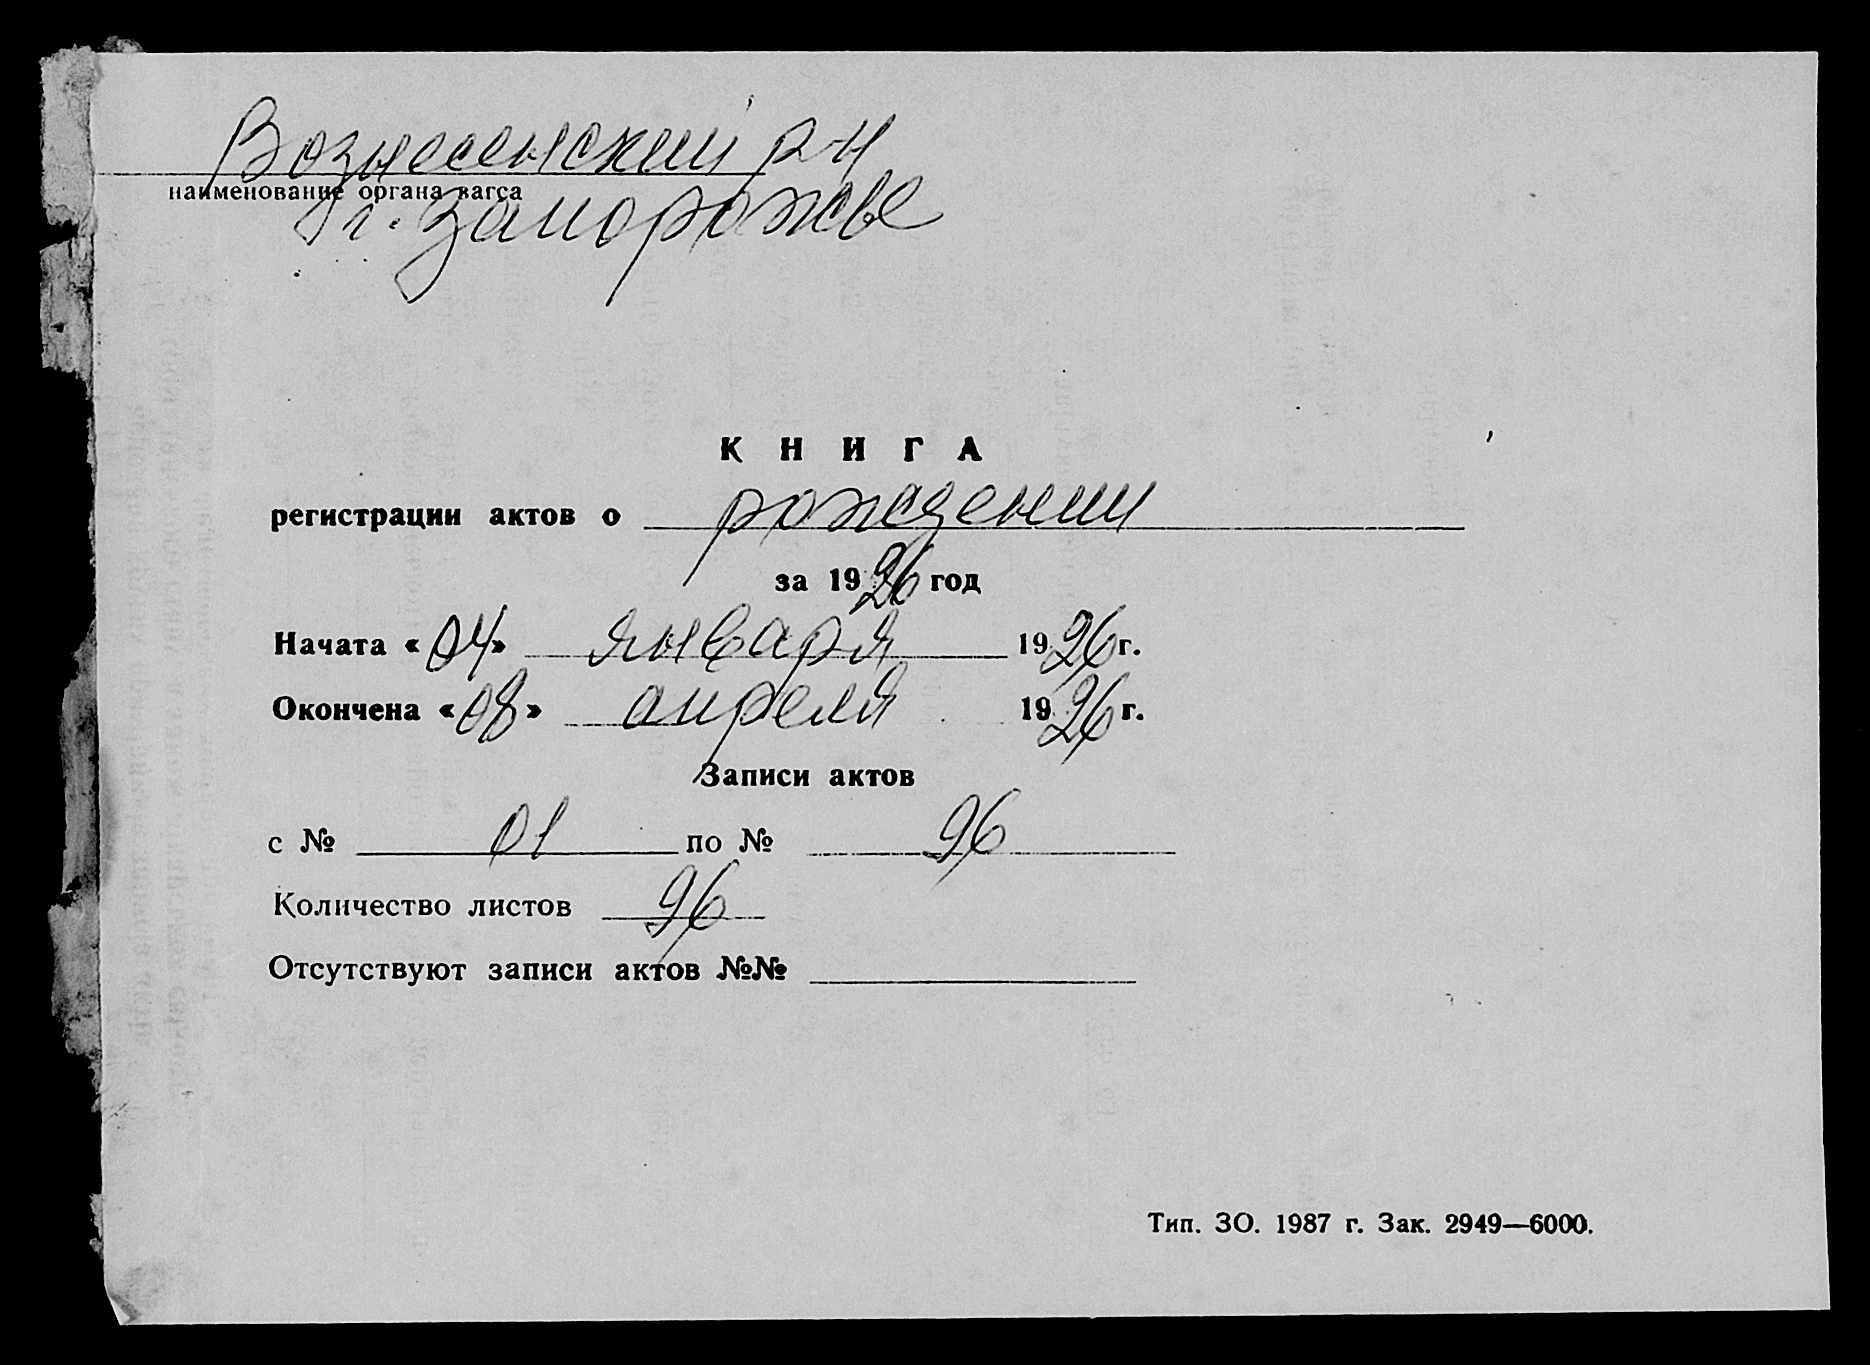 Вознесенский р-н
наименование органа загса
г. Запорожье
КНИГА
регистрации актов о рождении
за 1926 год
Начата «04» января 1926 г.
Окончена «08» апреля 1926 г.
Записи актов
с № 01 по № 96
Количество листов 96
Отсутствуют записи актов №№
Тип. ЗО. 1987 г. Зак. 2949—6000.